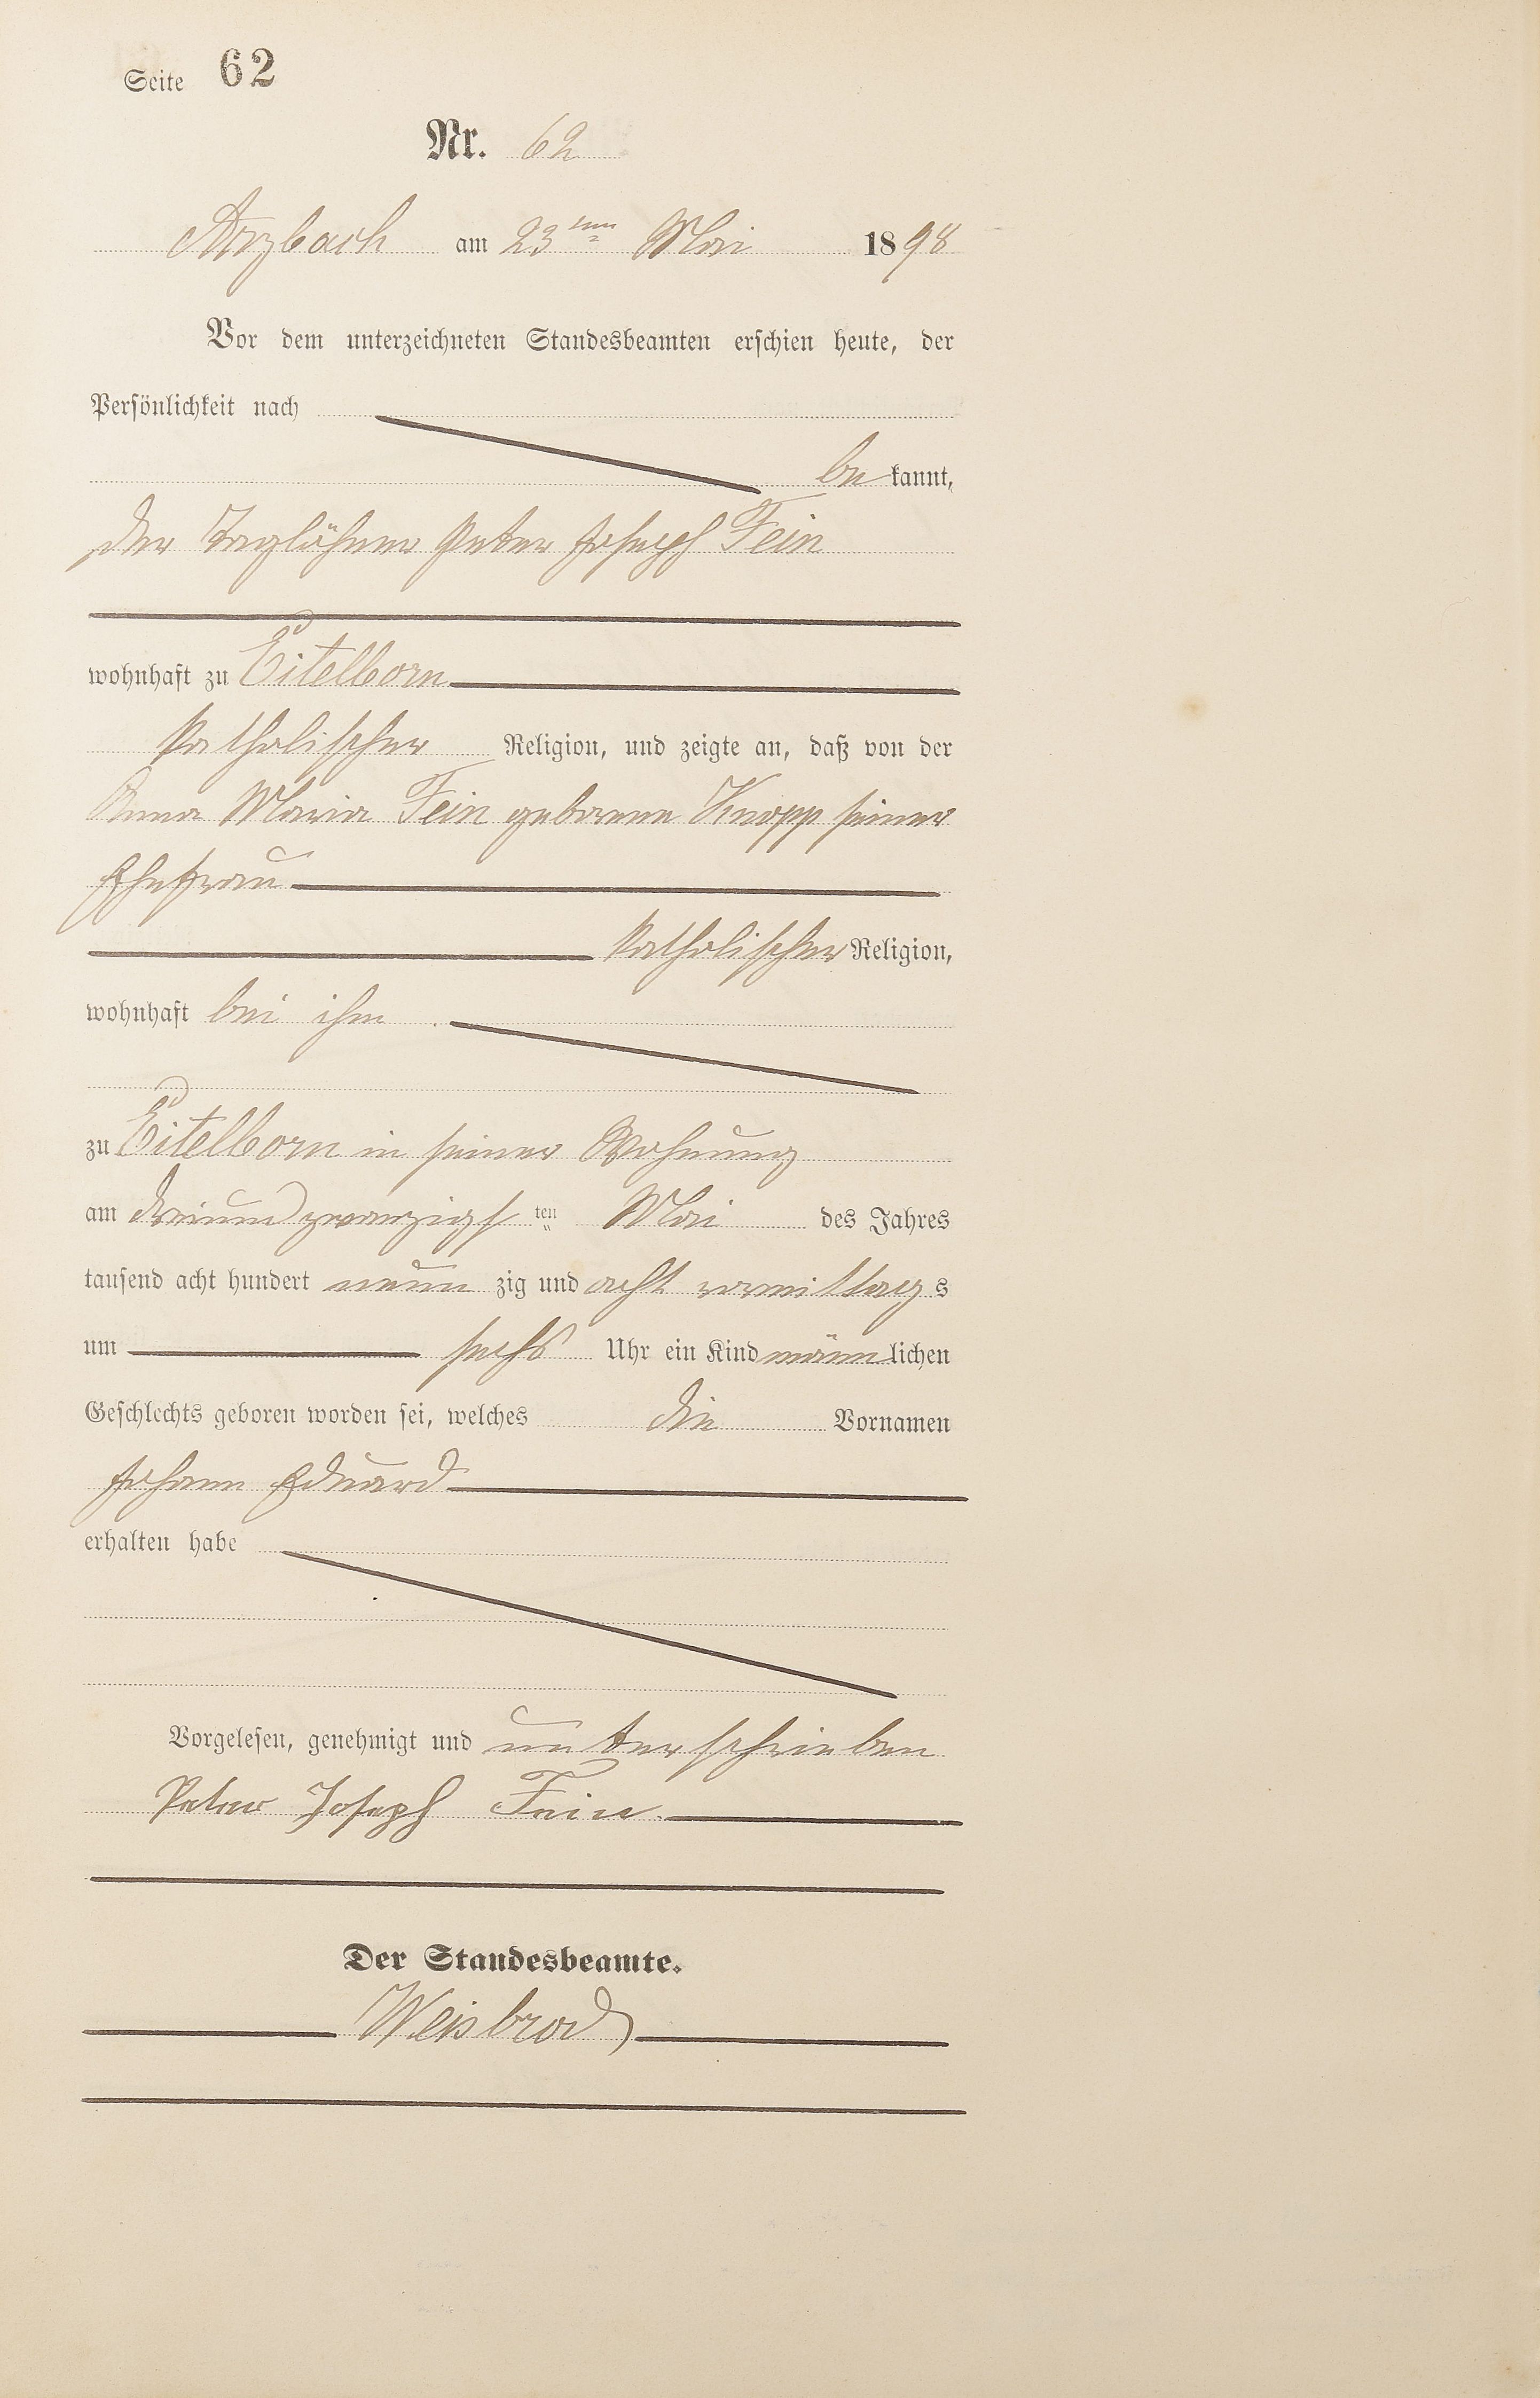 Seite 62
Nr. 62
Arzbach am 23ten Mai 1898
Vor dem unterzeichneten Standesbeamten erschien heute, der
Persönlichkeit nach
be kannt,
der Taglöhner Peter Joseph Fein
wohnhaft zu Eitelborn
katholischer Religion, und zeigte an, daß von der
Anna Maria Fein geborene Knopp seiner
Ehefrau
katholischer Religion,
wohnhaft bei ihm
zu Eitelborn in seiner Wohnung
am dreiundzwanzigst ten Mai des Jahres
tausend acht hundert neun zig und acht vormittag s
um sechs Uhr ein Kind männ lichen
Geschlechts geboren worden sei, welches die Vornamen
Johann Eduard
erhalten habe
Vorgelesen, genehmigt und unterschrieben
Peter Joseph Fein.
Der Standesbeamte.
Weisbrod